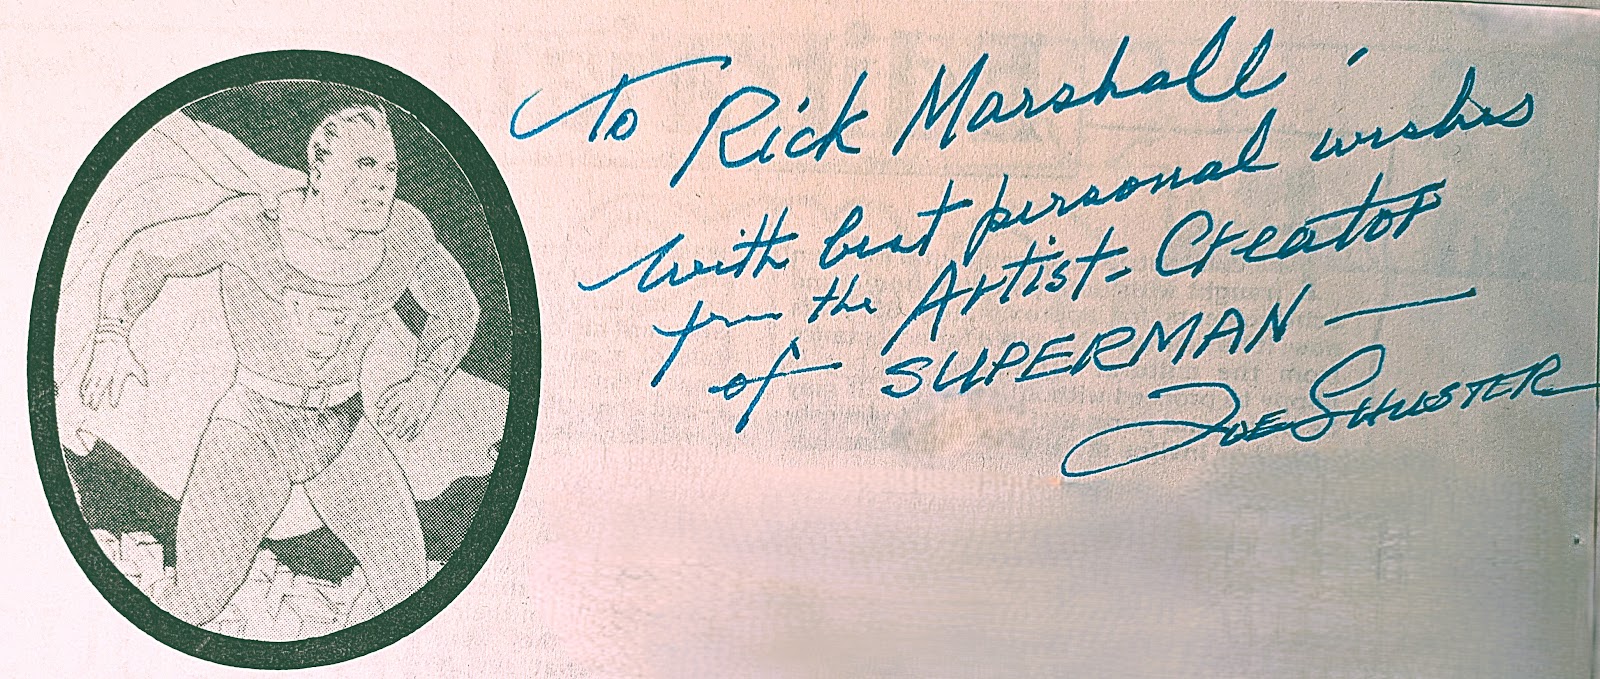 To Rick Marshall -
with best personal wishes
from the Artist-Creator
of SUPERMAN —
JOE SHUSTER